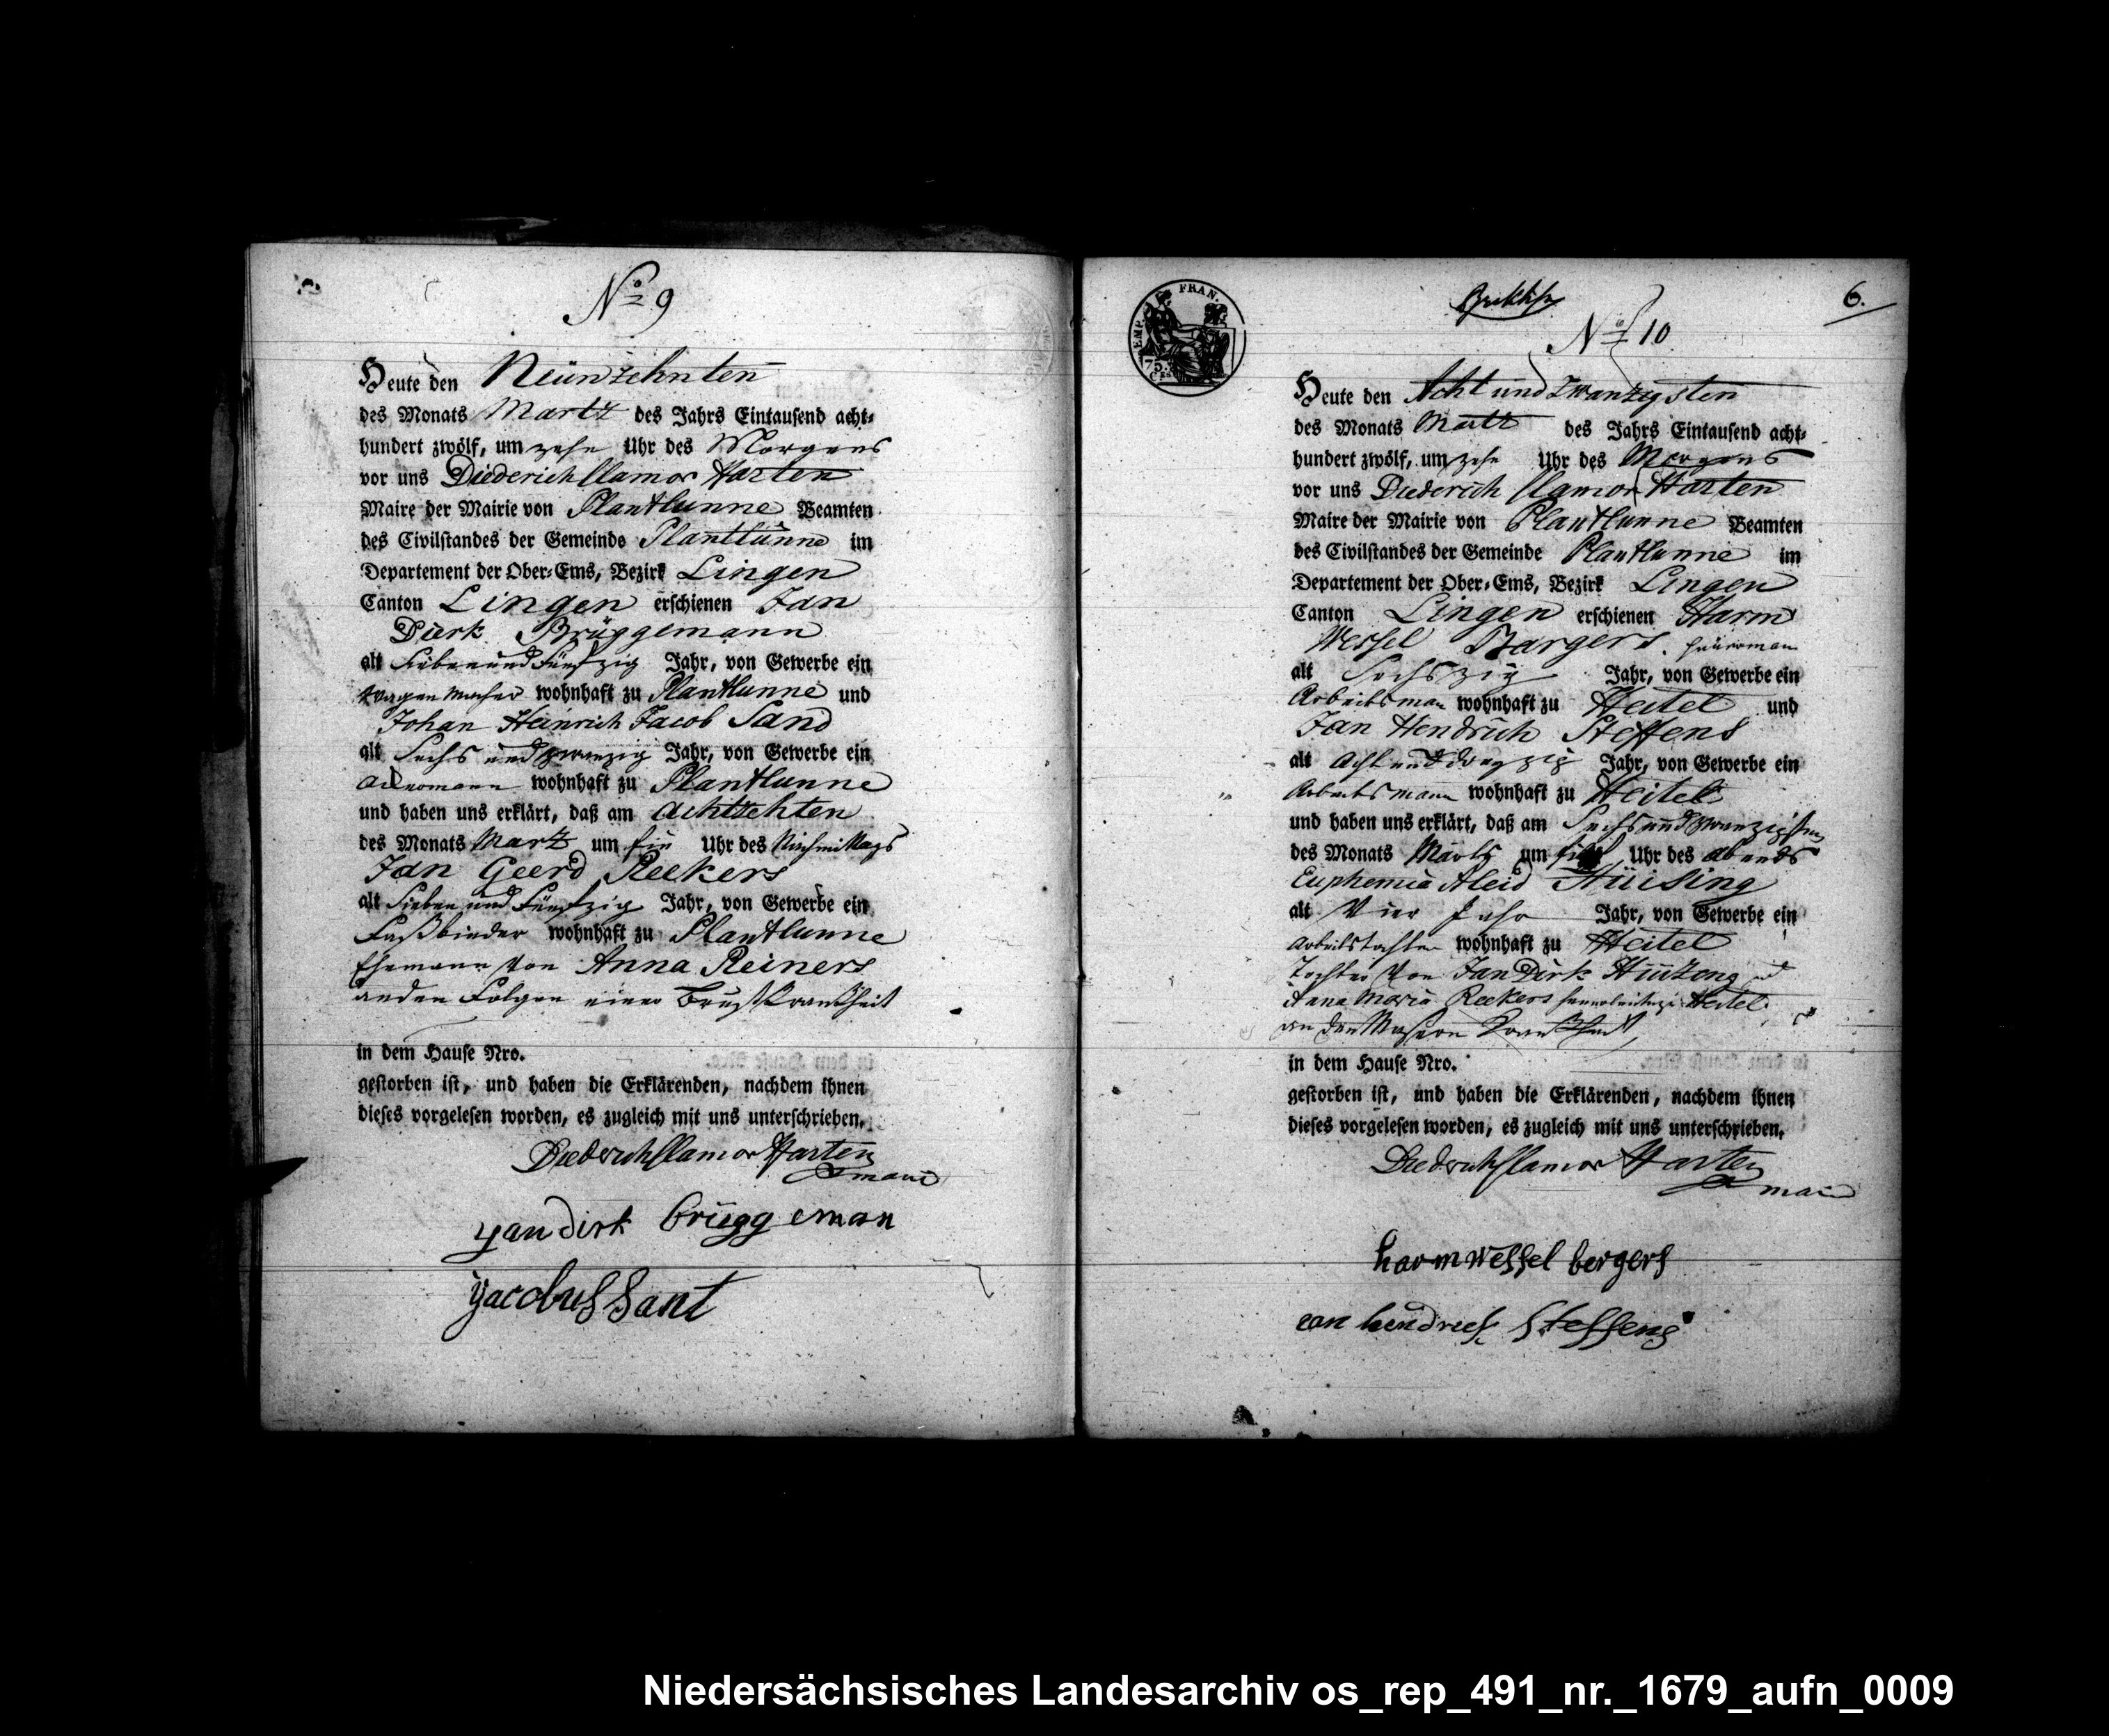 No 9
Heute den Neünzehnten
des Monats Martz des Jahrs Eintausend acht-
hundert zwölf, um zehn Uhr des Morgens
vor uns Diederich Clamor Harten
Maire der Mairie von Plantlunne Beamten
des Civilstandes der Gemeinde Plantlünne im
Departement der Ober-Ems, Bezirk Lingen
Canton Lingen erschienen Jan
Dierk Brüggemann
alt Sieben und Fünfzig Jahr, von Gewerbe ein
Wagenmacher wohnhaft zu Plantlunne und
Johan Heinrich Jacob Sand
alt Sechs und zwanzig Jahr, von Gewerbe ein
Ackermann wohnhaft zu Plantlunne
und haben uns erklärt, daß am Achtzehten
des Monats Martz um Uhr des Nachmittags
Jan Geerd Reekers
alt Sieben und Fünfzig Jahr, von Gewerbe ein
Faßbinder wohnhaft zu Plantlunne
Ehemann von Anna Reiners
an den Folgen einer Brustkrankheit
in dem Hause Nro.
gestorben ist, und haben die Erklärenden, nachdem ihnen
dieses vorgelesen worden, es zugleich mit uns unterschrieben.
Diedrich Clamor Harten
maire
yan dirk brüggeman
yacobus Sant
EMP. FRAN.
75.
Cms
6.
No 10
Heute den Acht und Zwanzigsten
des Monats Martz des Jahrs Eintausend acht-
hundert zwölf, um zehn Uhr des Morgens
vor uns Diederich Clamor Harten
Maire der Mairie von Plantlunne Beamten
des Civilstandes der Gemeinde Plantlunne im
Departement der Ober-Ems, Bezirk Lingen
Canton Lingen erschienen Harm
Wessel Bargers. heuerman
alt Sechszig Jahr, von Gewerbe ein
Arbeitsman wohnhaft zu Heitel und
Jan Hendrich Steffens
alt acht und dreyzig Jahr, von Gewerbe ein
Arbeitsmann wohnhaft zu Heitel
und haben uns erklärt, daß am Sechs und zwanzigsten
des Monats Märtz um Uhr des abends
Euphemia Aleid Hüising
alt Vier Jahr Jahr, von Gewerbe ein
Arbeitstochter wohnhaft zu Heitel
Tochter von Jan Dirk Hüizeng und
Anna Maria Reekers heuerleute zu Heitel
an den Masern Krankheit
in dem Hause Nro.
gestorben ist, und haben die Erklärenden, nachdem ihnen
dieses vorgelesen worden, es zugleich mit uns unterschrieben.
Diedrich Clamor Harten
maire
harm wessel bergers
ean hendrick Steffens
Niedersächsisches Landesarchiv os_rep_491_nr._1679_aufn_0009